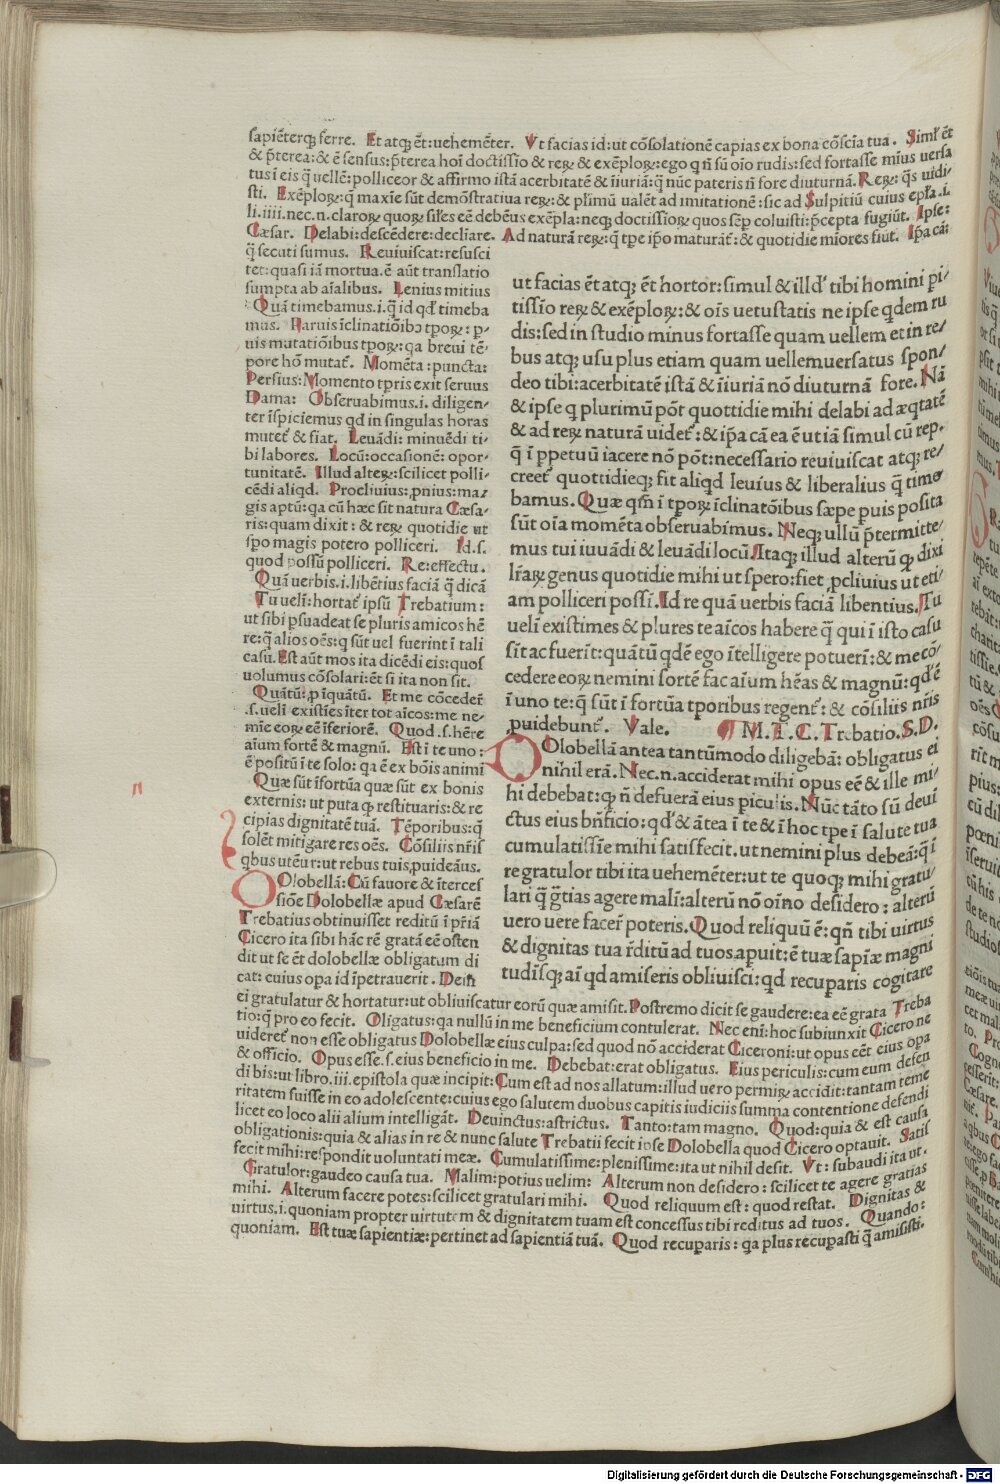 sapiēterq; ferre. Et atq; ēt: uehemēter. Vt facias id: ut cōsolationē capias ex bona cōsciā tua. Siml' ēt
& p̄terea: & ē sensus: p̄terea hoī doctissīo & reꝝ & exēploꝝ: ego q n̄ sū oīo rudis: sed fortasse mīus uersa
tus ī eis q̄ uellē: polliceor & affirmo istā acerbitatē & īiuriā: q̄ nūc pateris n̄ fore diuturnā. Reꝝ: q̄s uidi/
sti. Exēploꝝ: q̄ maxīe sūt demōstratiua reꝝ: & pl'imū ualēt ad imitationē: sic ad Sulpitiū cuius epl'a .i.
li. iiii. nec. n. claroꝝ quoꝝ siles eē debēus exēpla: neq; doctissioꝝ quos sēp coluisti: p̄cepta fugiūt. Ipse:
Cæsar. Delabi: descēdere: declīare. Ad naturā reꝝ: q̄ tpe ip̄o maturāt̄: & quotidie mīores fiūt. Ip̄a cā:
q̄ secuti sumus. Reuiuiscat: resusci
tet: quasi iā mortua. ē aūt translatio
sumpta ab aīalibus. Lenius mitius
Quā timebamus. i. q̄ id qd' timeba
mus. Paruis īclinatiōibꝰ tpoꝝ: p/
uis mutatiōibus tpoꝝ: qa breui tē/
pore hōn mutat̄. Momēta: puncta:
Persius: Momento tpris exit seruus
Dama: Obseruabimus. i. diligen/
ter īspiciemus qd in singulas horas
mutet̄ & fiat. Leuādi: minuēdi ti/
bi labores. Locū: occasionē: opor/
tunitatē. Illud alteꝝ: scilicet polli/
cēdi aliqd. Procliuius: ꝓnius: ma/
gis aptū: qa cū hæc sit natura Cæsa/
ris: quam dixit: & reꝝ quotidie ut
spo magis potero polliceri. Id. s.
quod possū polliceri. Re: effectu.
Quā uerbis. i. libētius faciā q̄ dicā
Tu ueli: hortat̄ ipsū Trebatium:
ut sibi psuadeat se pluris amicos hē
re: q̄ alios oēs: q sūt uel fuerint ī tali
casu. Est aūt mos ita dicēdi eis: quos
uolumus cōsolari: ēt si ita non sit.
Quātū: ꝓ īquātū. Et me cōceder̄
.s. ueli existies īter tot aīcos: me ne/
mīe eoꝝ eē īferiorē. Quod. s. hēre
aīum fortē & magnū. Est ī te uno:
ē positū ī te solo: qa ē ex bōis animi
Quæ sūt īfortūa quæ sūt ex bonis
externis: ut puta q; restituaris: & re
cipias dignitatē tuā. Tēporibus: q̄
solēt mitigare res oēs. Cōsiliis nr̄is
qbus utēur: ut rebus tuis ꝓuideāus.
DOlobellā: Cū fauore & īterces
siōe Dolobellæ apud Cæsarē
Trebatius obtinuisset reditū ī pr̄iā
Cicero ita sibi hāc rē gratā eē osten
dit ut se ēt dolobellæ obligatum di
cat: cuius opa id īpetrauerit. Dein̄
ut facias ēt atq; ēt hortor: simul & illd' tibi homini pi/
tissīo reꝝ & exēploꝝ: & oīs uetustatis ne ipse qdem ru
dis: sed in studio minus fortasse quam uellem et in re/
bus atq; usu plus etiam quam uellemuersatus spon/
deo tibi: acerbitatē istā & īiuriā nō diuturnā fore. Nā
& ipse q plurimū pōt quottidie mihi delabi ad æqtatē
& ad reꝝ naturā uidet̄: & ip̄a cā ea ē ut iā simul cū rep.
q̄ ī ppetuū iacere nō pōt: necessario reuiuiscat atq; re/
creet̄ quottidieq; fit aliqd leuius & liberalius q̄ time
bamus. Quæ qm̄ ī tpoꝝ īclinatōibus sæpe puis posita
sūt oīa momēta obseruabimus. Neq; ullū p̄termitte/
mus tui iuuādi & leuādi locū. Itaq; illud alterū q; dixi
lr̄aꝝ genus quotidie mihi ut spero: fiet ꝓcliuius ut eti/
am polliceri possī. Id re quā uerbis faciā libentius. Tu
ueli existimes & plures te aīcos habere q̄ qui ī isto casu
sīt ac fuerīt: quātū qdē ego ītelligere potueri: & me cō/
cedere eoꝝ nemini fortē fac aīum hēas & magnū: qd' ē
ī uno te: q̄ sūt ī fortūa tporibus regent̄: & cōsiliis nr̄is
ꝓuidebunt̄. Vale. ¶ M. T. C. Trebatio. S. D.
DOlobellā antea tantūmodo diligebā: obligatus ei
nihil erā. Nec. n. acciderat mihi opus eē & ille mi/
hi debebat: q; n̄ defuerā eius piculis. Nūc tāto sū deuī
ctus eius bn̄ficio: qd' & ātea ī te & ī hoc tpe ī salute tua
cumulatissīe mihi satisfecit. ut nemini plus debeā: q̄ ī
re gratulor tibi ita uehemēter: ut te quoq; mihi gratu/
lari q̄ g̅tias agere malī: alterū nō oīno desidero: alterū
uero uere facer̄ poteris. Quod reliquū ē: qn̄ tibi uirtus
& dignitas tua r̄ditū ad tuos apuit: ē tuæ sapīæ magni
tudīsq; aī qd amiseris obliuisci: qd recuparis cogitare
ei gratulatur & hortatur: ut obliuiscatur eorū quæ amisit. Postremo dicit se gaudere: ea eē grata Treba
tio: q̄ pro eo fecit. Oligatus: qa nullū in me beneficium contulerat. Nec eni: hoc subiunxit Cicero ne
uideret̄ non esse obligatus Dolobellæ eius culpa: sed quod nō acciderat Ciceroni: ut opus cēt eius opa
& officio. Opus esse. s. eius beneficio in me. Debebat: erat obligatus. Eius periculis: cum eum defen
di bis: ut libro. iii. epistola quæ incipit: Cum est ad nos allatum: illud uero permiꝝ accidit: tantam teme
ritatem fuisse in eo adolescente: cuius ego salutem duobus capitis iudiciis summa contentione defendi
licet eo loco alii alium intelligāt. Deuinctus: astrictus. Tanto: tam magno. Quod: quia & est causa
obligationis: quia & alias in re & nunc salute Trebatii fecit ipse Dolobella quod Cicero optauit. Satis
fecit mihi: respondit uoluntati meæ. Cumulatissime: plenissime: ita ut nihil desit. Vt: subaudi ita ut.
Gratulor: gaudeo causa tua. Malim: potius uelim: Alterum non desidero: scilicet te agere gratias
mihi. Alterum facere potes: scilicet gratulari mihi. Quod reliquum est: quod restat. Dignitas &
uirtus. i. quoniam propter uirtutem & dignitatem tuam est concessus tibi reditus ad tuos. Quando:
quoniam. Est tuæ sapientiæ: pertinet ad sapientiā tuā. Quod recuparis: qa plus recupasti q̄ amisisti.
Digitalisierung gefördert durch die Deutsche Forschungsgemeinschaft - DFG